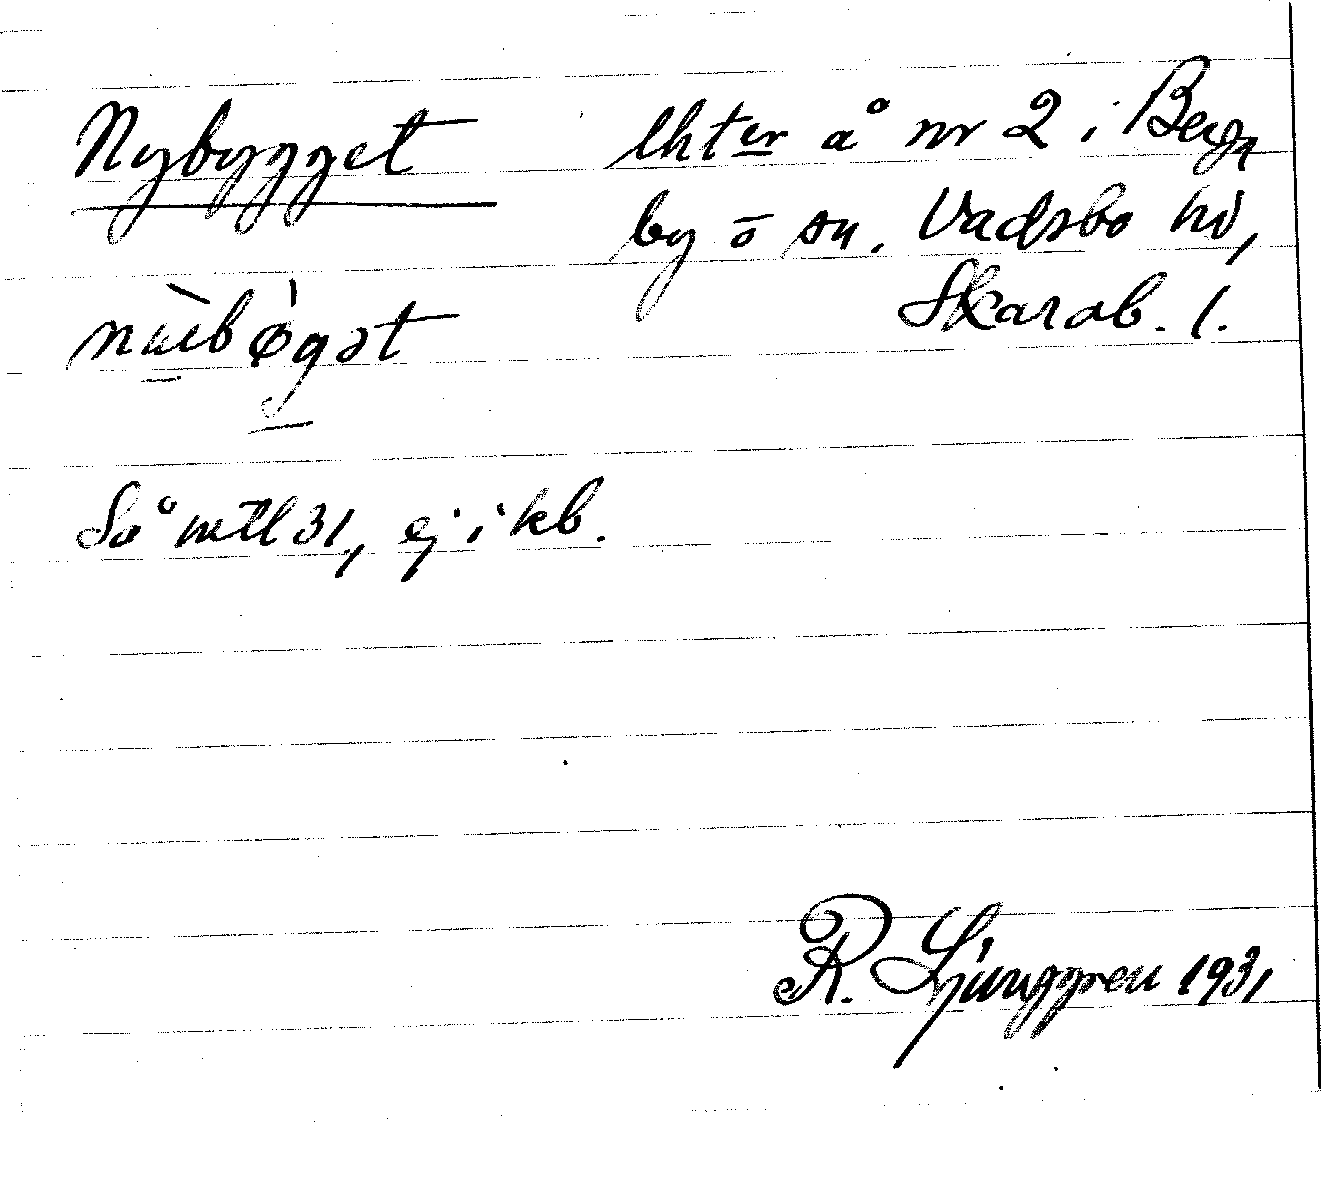 Nybygget lht er å nr 2 i Bergs
by o sn. Vadsbo hd,
Skarab. l.
Så mtl 31, ej i kb.
R. Ljunggren 1931